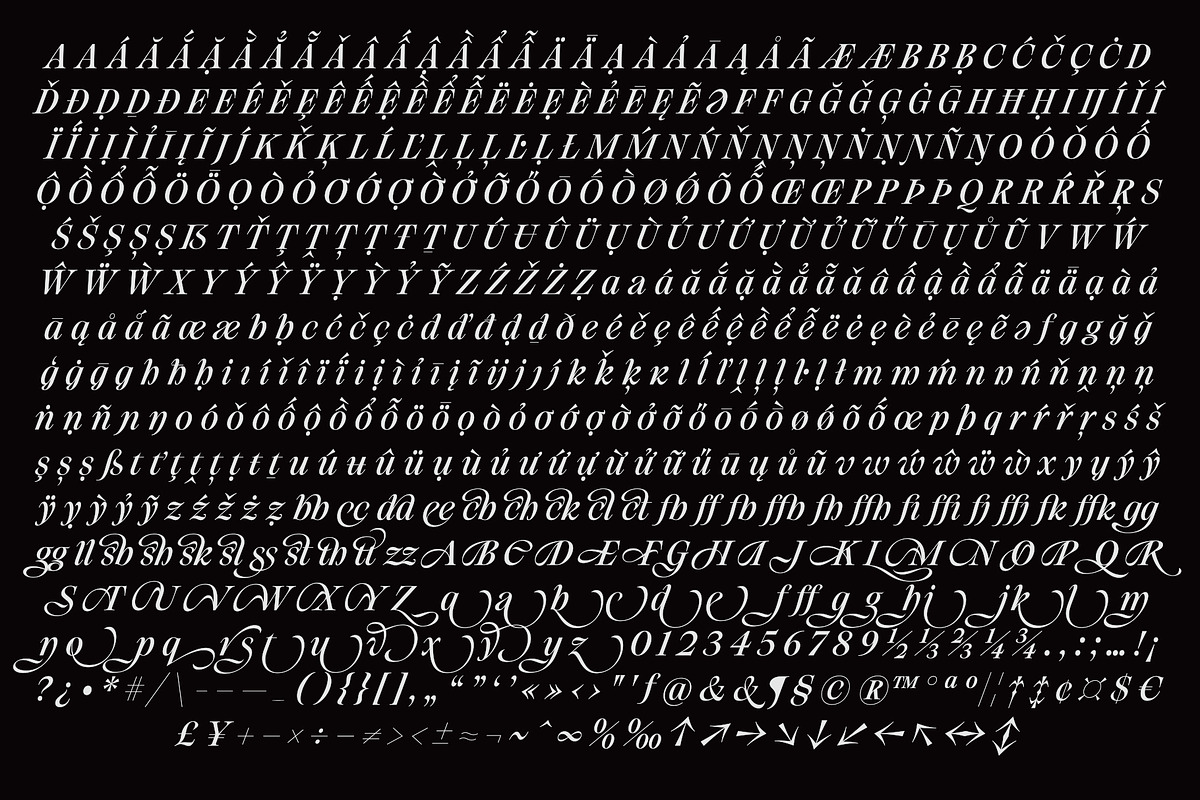 A A Á Ă Ắ Ặ Ằ Ẳ Ẵ Ǎ Â Ấ Ậ Ầ Ẩ Ẫ Ä Ǟ Ạ À Ả Ā Ą Å Ã Æ Æ B B Ḅ C Ć Č Ç Ċ D
Ď Đ Ḍ Ḏ Ð E E É Ě Ȩ Ê Ế Ệ Ề Ể Ễ Ë Ė Ẹ È Ẻ Ē Ę Ẽ Ə F F G Ğ Ǧ Ģ Ġ Ḡ H Ħ Ḥ I Ĳ Í Ǐ Î
Ï Ḯ İ Ị Ì Ỉ Ī Į Ĩ J J́ K Ǩ Ķ L Ĺ Ľ Ļ Ḷ Ł M Ḿ N Ń Ň Ņ Ṅ Ṇ Ñ Ŋ O Ó Ǒ Ô Ố
Ộ Ồ Ổ Ỗ Ö Ȫ Ọ Ò Ỏ Ơ Ớ Ợ Ờ Ở Ỡ Ő Ō Ṓ Ṑ Ø Ǿ Õ Œ Œ P P Þ Þ Q R R Ŕ Ř Ṛ S
Ś Š Ş Ș Ṣ ẞ T Ť Ţ Ț Ṭ Ŧ Ṯ U Ú Ʉ Û Ü Ụ Ù Ủ Ư Ứ Ự Ừ Ử Ữ Ű Ū Ų Ů Ũ V W Ẃ
Ŵ Ẅ Ẁ X Y Ý Ŷ Ÿ Ỵ Ỳ Ỷ Ỹ Z Ź Ž Ż Ẓ a a á ă ắ ặ ằ ẳ ẵ ǎ â ấ ậ ầ ẩ ẫ ä ǟ ạ à ả
ā ą å ǻ ã æ æ b ḅ c ć č ç ċ d ď đ ḍ ḏ ð e é ě ȩ ê ế ệ ề ể ễ ë ė ẹ è ẻ ē ę ẽ ə f g g ğ ǧ
ģ ġ ḡ g h ħ ḥ i ı í ǐ î ï ḯ i ị ì ỉ ī į ĩ ĳ j ȷ j́ k ǩ ķ ĸ l ĺ ľ ļ ḷ ł m m ḿ n n ń ň ņ
ṅ ṇ ñ ŋ o ó ǒ ô ố ộ ồ ổ ỗ ö ȫ ọ ò ỏ ơ ớ ợ ờ ở ỡ ő ō ṓ ṑ ø ǿ õ œ p þ q r ŕ ř ṛ s ś š
ş ș ṣ ß t ť ţ ț ṭ ŧ ṯ u ú ʉ û ü ụ ù ủ ư ứ ự ừ ử ữ ű ū ų ů ũ v w ẃ ŵ ẅ ẁ x y y ý ŷ
ÿ ỵ ỳ ỷ ỹ z ź ž ż ẓ bb cc dd ee cb ch ck cl ct fb ff fb ffb fh ffh fi ffi fj ffj fk ffk gg
gg ll sb sh sk sl ss st th tt zz A B C D E F G H I J K L M N O P Q R
S T U V W X Y Z a a b c d e f ff g g h i j k l m
n o p q r s t u v x y y z 0 1 2 3 4 5 6 7 8 9 ½ ⅓ ⅔ ¼ ¾ . , : ; … ! ¡
? ¿ • * # / \ - – — _ ( ) { } [ ] ‚ „ “ ” ‘ ’ « » ‹ › " ' ƒ @ & & ¶ § © ® ™ ° ª º | ¦ † ‡ ¢ ¤ $ €
£ ¥ + − × ÷ − ≠ > < ± ≈ ¬ ~ ^ ∞ % ‰ ↑ ↗ → ↘ ↓ ↙ ← ↖ ↔ ↕